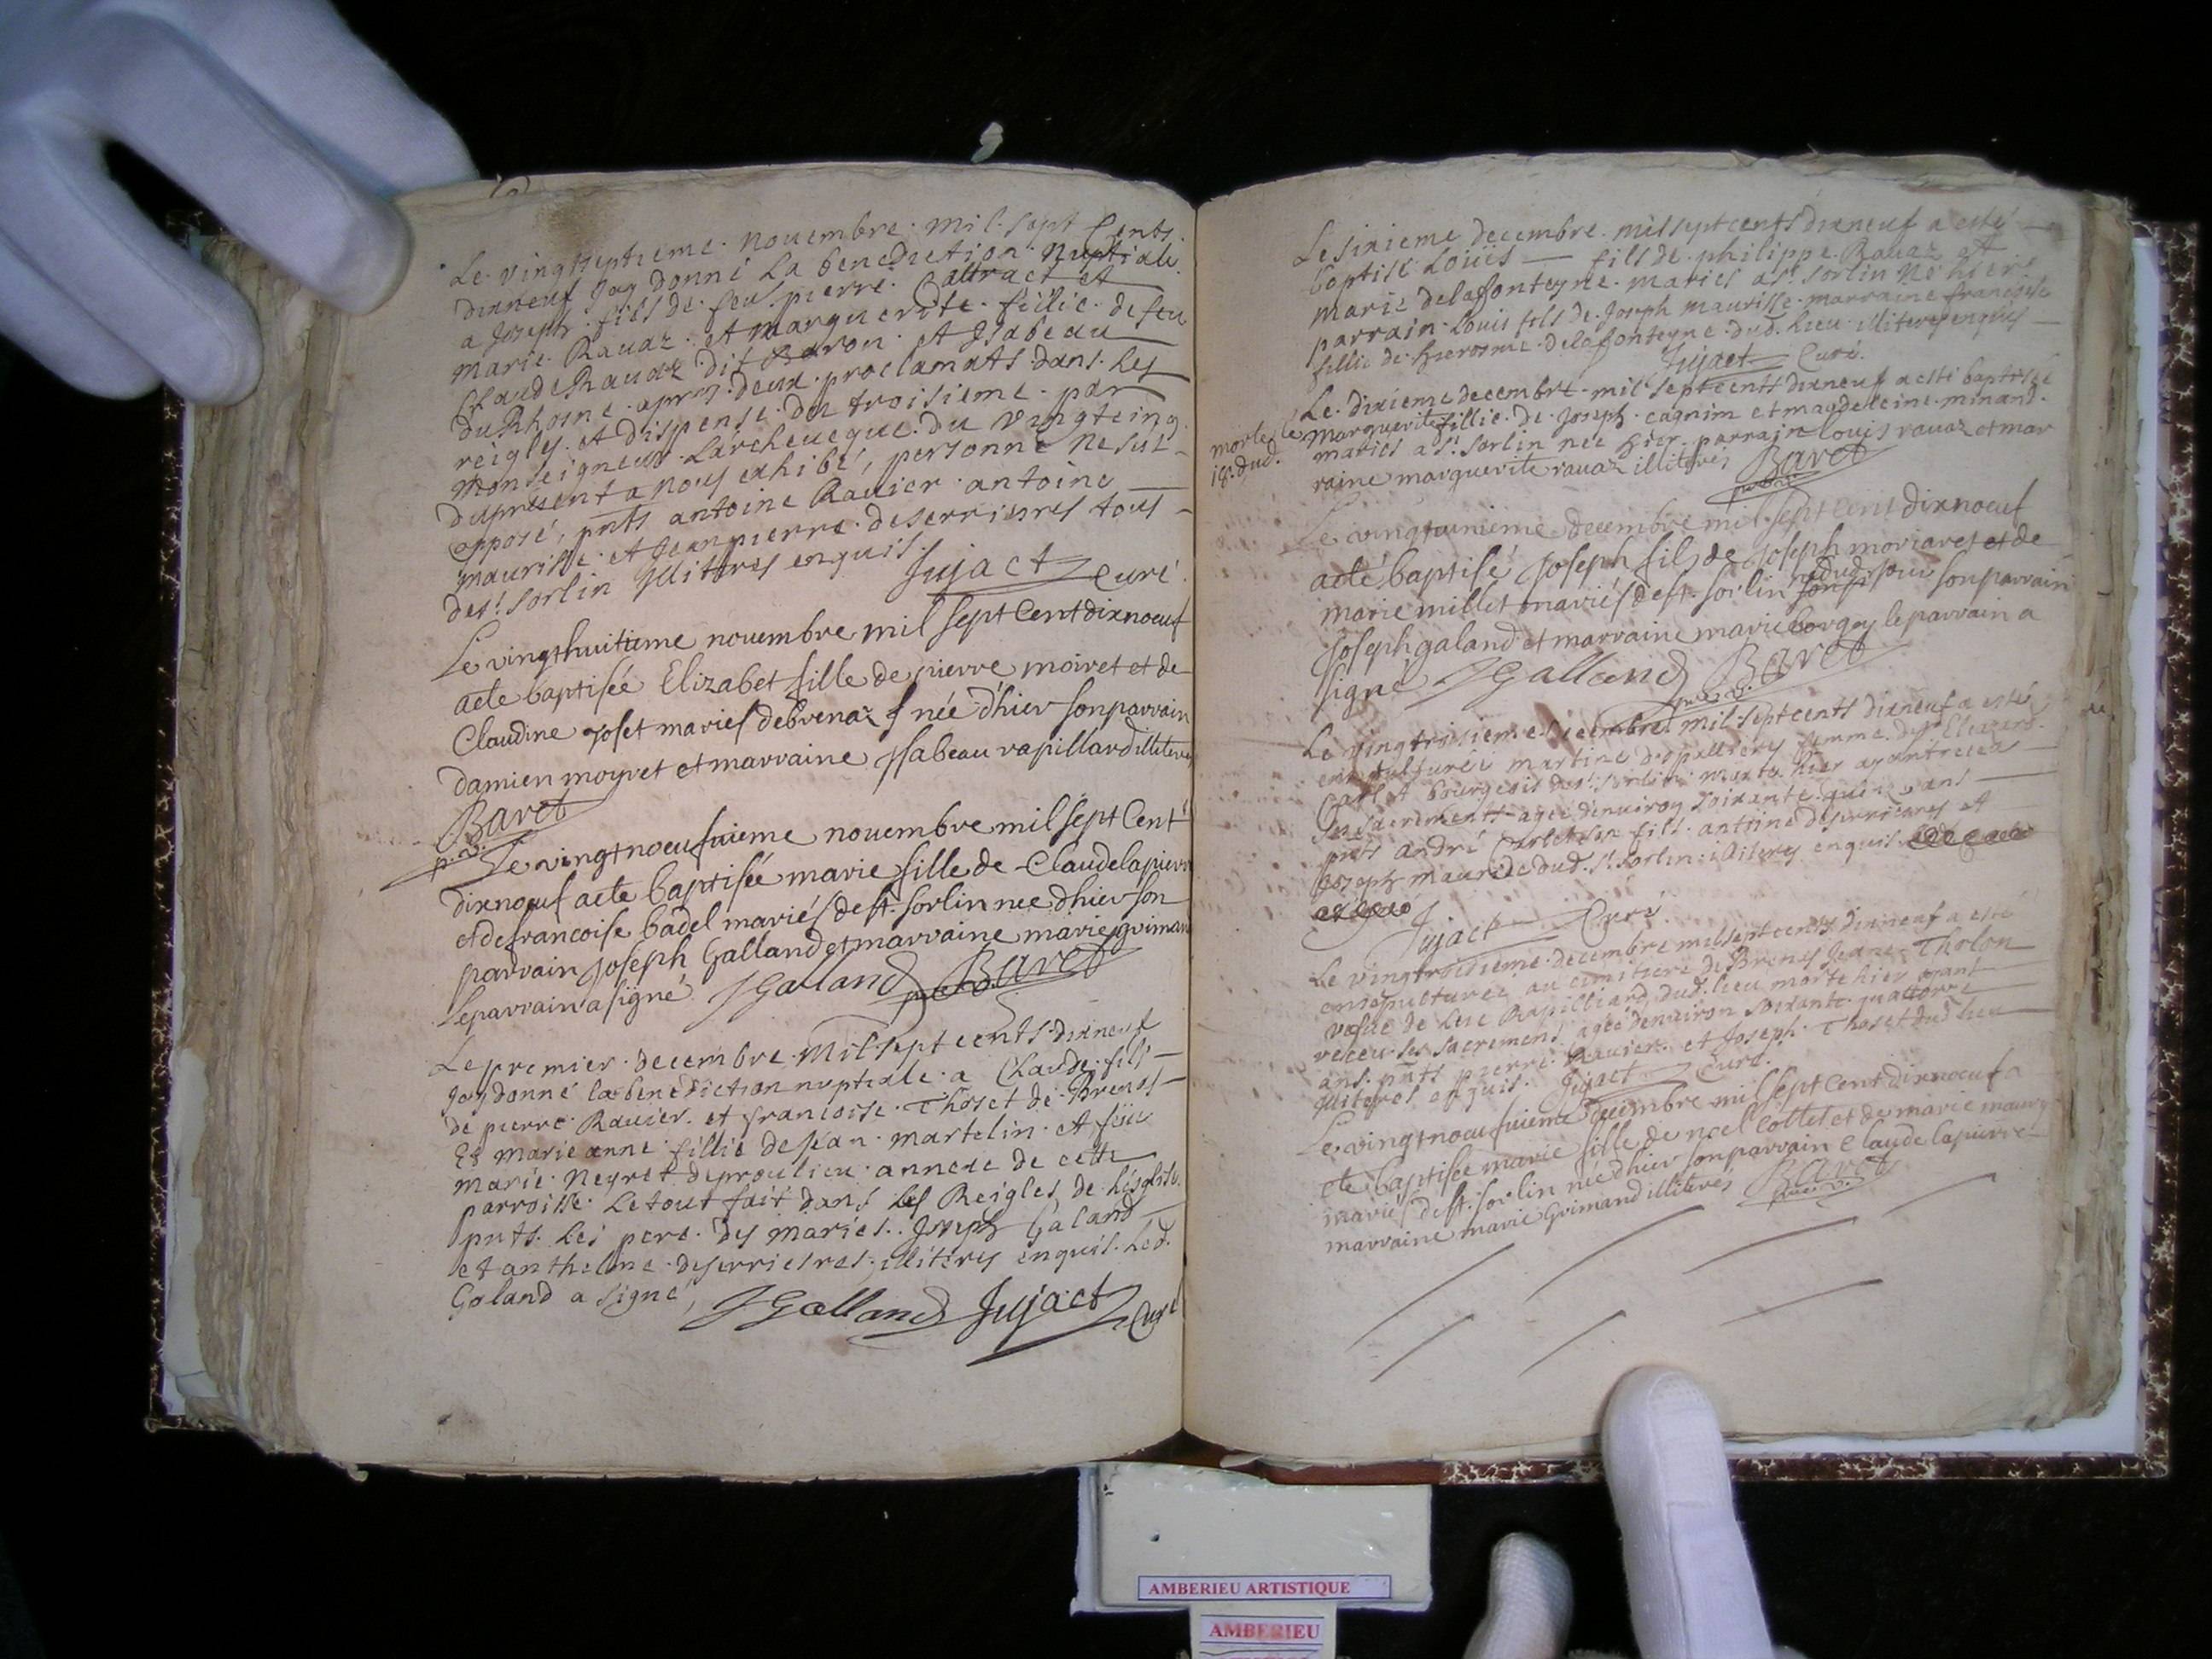 Le vingtseptieme nouembre mil sept Cents
dixneuf Jay donné La benediction nuptiale
a Joseph fils de feu pierre Cattract et
marie Rauaz et marguerite fillie de feu
Claude Rauaz dit Baron et Isabeau
du Rhosne apres deux proclamats dans les
reigles et dispense du troisieme par
monseigneur Larcheueque du vingtcinq
dupresent a nous exhibé, personne ne sut
opposé, pnts antoine Rauier antoine
maurisse et Jean pierre deserrieres tous
de st sorlin Illiteres enquis.
Jujact Curé
Le vingthuitieme nouembre mil sept Cent dixnoeuf
aete baptisée Elizabet fille de pierre moiret et de
Claudine joset mariés debrenaz née d'hier son parrain
damien moyret et marraine Isabeau rapillard illiteres
Baret
p. v.
Le vingtnoeufuieme nouembre mil sept Cent
dixnoeuf aete baptisée marie fille de Claude lapierre
et de francoise badel mariés de st. sorlin nee d'hier son
parrain Joseph Galland et marraine marie grimand
Le parrain a signé JGalland Baret
Le premier decembre mil sept cents dixneuf
Jay donné la benediction nuptiale a Claude fils
de pierre Rauier et francoise Thoset de Brenas
Et marie anne fillie de Jean martelin et feüe
marie Neyret de proulieu annexe de cette
parroisse Le tout fait dans les Reigles de Lesglise
pnts Les pere des mariés Joseph Galand
et anthelme deserrieres illiteres enquis Led.
Galand a signé, JGalland Jujact Curé
Le sixieme decembre mil sept cents dixneuf a esté
baptisé Loüis fils de philippe Rauaz et
marie delaffonteyne mariés a st sorlin né hier
parrain Louis fils de Joseph maurisse marraine francoise
fillie de hierosme delaffonteyne dud. Lieu illiteres enquis
Jujact Curé
Le dixieme decembre mil septcents dixneuf a esté baptisée
marguerite fillie de Joseph cagnim et magdeleine minand
mariés a st sorlin née hier parrain louis rauaz et mar
raine marguerite rauaz illiterés Baret
morte le
18. dud.
Le vingtunieme decembre mil sept Cent dixnoeuf
aeté baptisé Joseph fils de Joseph moriaret et de
marie millet mariés de st. sorlin né dud jour son parrain
Joseph galand et marraine marie borgey le parrain a
signé JGalland Baret
Le vingtroisieme decembre mil sept cents dixneuf a esté
ensepulturée martine despallieres femme de sr
bourgeois de st sorlin morte hier ayant receu
les sacrements agée denuiron soixante quinze ans
pnts andré son fils antoine deserrieres et
Joseph maurisse dud. st sorlin illiteres enquis
Jujact Curé
Le vingtroisieme decembre mil sept cents dixneuf a esté
ensepulturée au cimitiere de Brenas Jeane Tholon
vefue de Luc Rapilliard dud. lieu morte hier ayant
receu les sacrements agée denuiron soixante quattorze
ans. pnts pierre Rauier et Joseph Thoset dud lieu
illiteres enquis. Jujact Curé
Le vingtnoeufuieme decembre mil sept cent dixnoeuf a
ete baptisée marie fille de noel Collet et de marie
mariés de st. sorlin née d'hier son parrain Claude lapierre
marraine marie Grimand illiterés Baret
AMBERIEU ARTISTIQUE
AMBERIEU